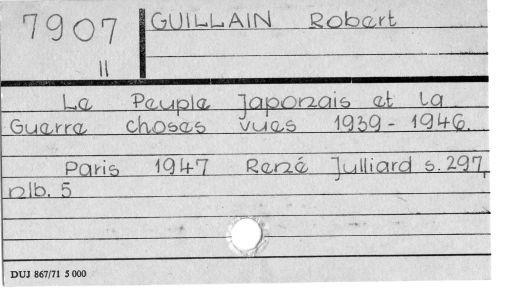 7907
II
GUILLAIN Robert
Le Peuple Japonais et la
Guerre choses vues 1939-1946.
Paris 1947 René Julliard s. 297,
nlb. 5
DUJ 867/71 5 000